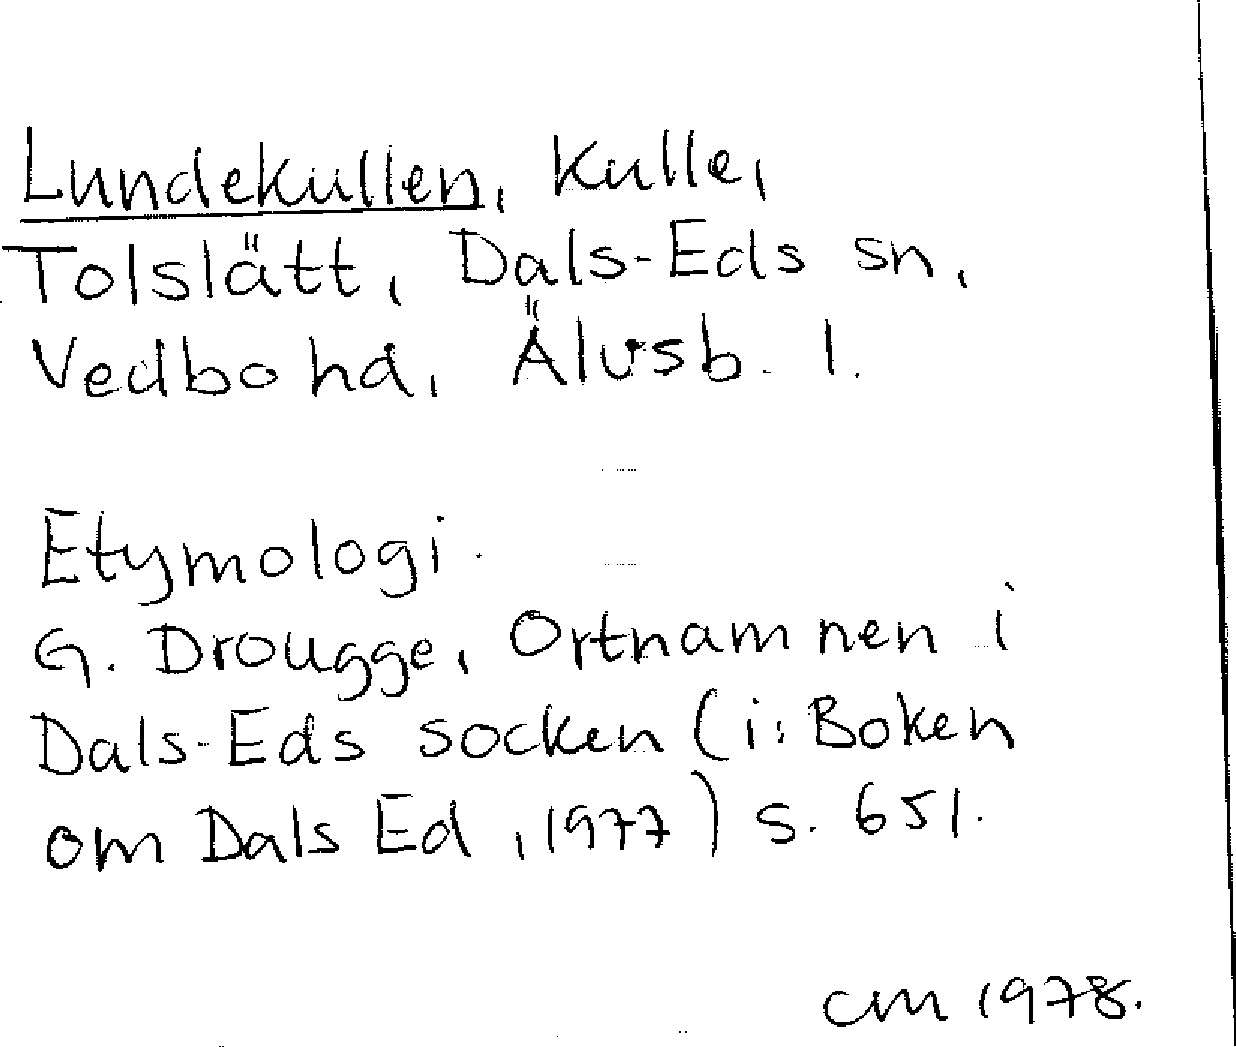 Lundekullen, Kulle,
Tolslätt, Dals-Eds sn,
Vedbo hd, Älvsb. l.
Etymologi.
G. Drougge, Ortnamnen i
Dals-Eds socken (i: Boken
om Dals Ed, 1977) s. 651.
CM 1978.